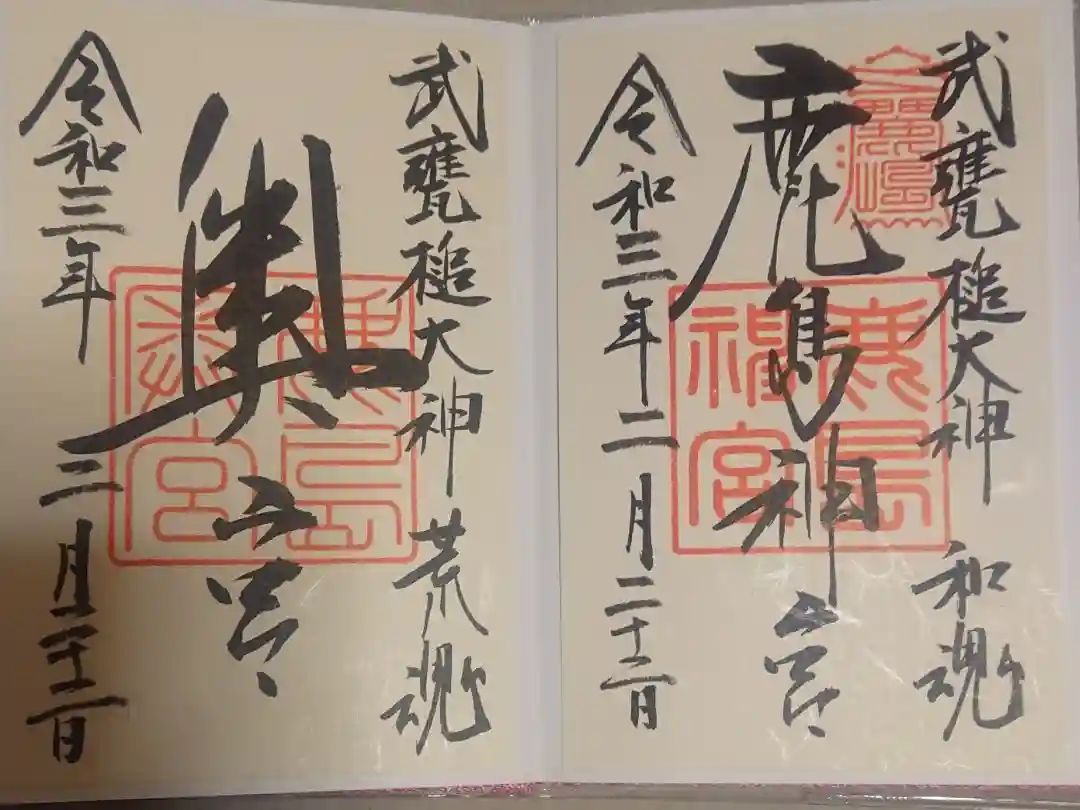 武甕槌大神 和魂
鹿島神宮
令和三年二月二十二日
鹿島神宮
武甕槌大神 荒魂
奥宮
令和三年二月二十二日
奥宮